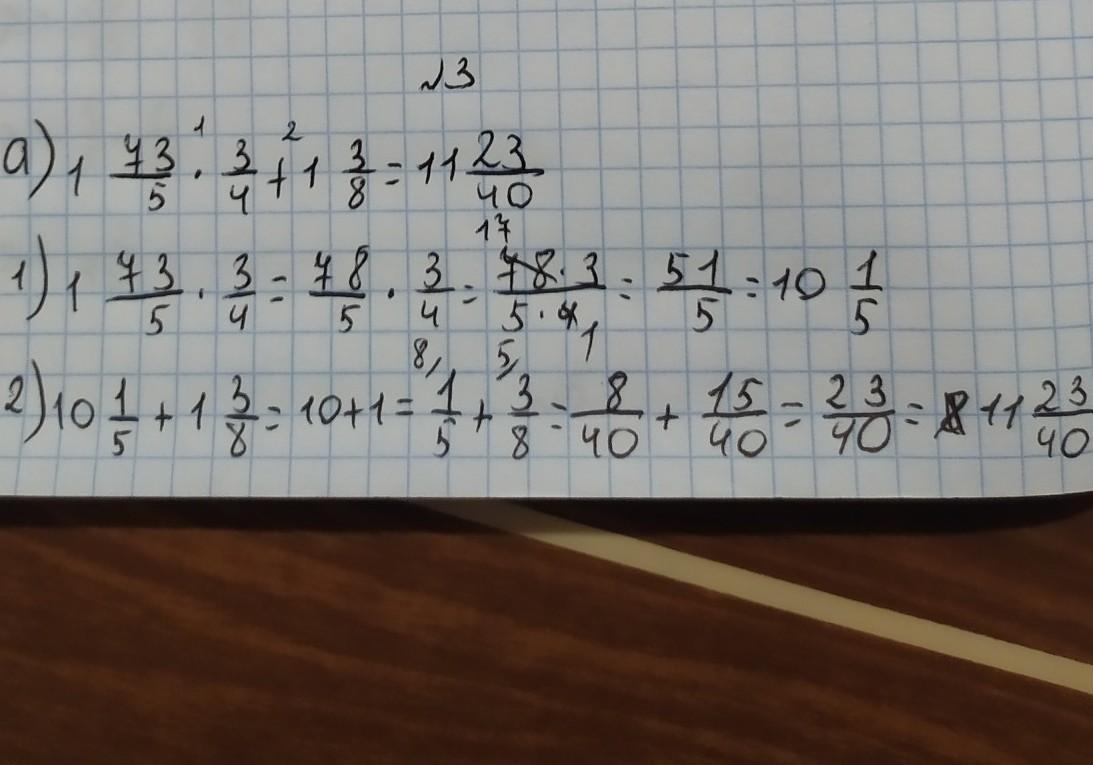 №3
а) 1 73/5 · ¹ 3/4 + ² 1 3/8 = 11 23/40
1) 1 73/5 · 3/4 = 78/5 · 3/4 = 78¹⁷ · 3/5 · 4₁ = 51/5 = 10 1/5
2) 10 1/5 + 1 3/8 = 10+1 = ⁸⁾ 1/5 + ⁵⁾ 3/8 = 8/40 + 15/40 = 23/40 = 11 23/40